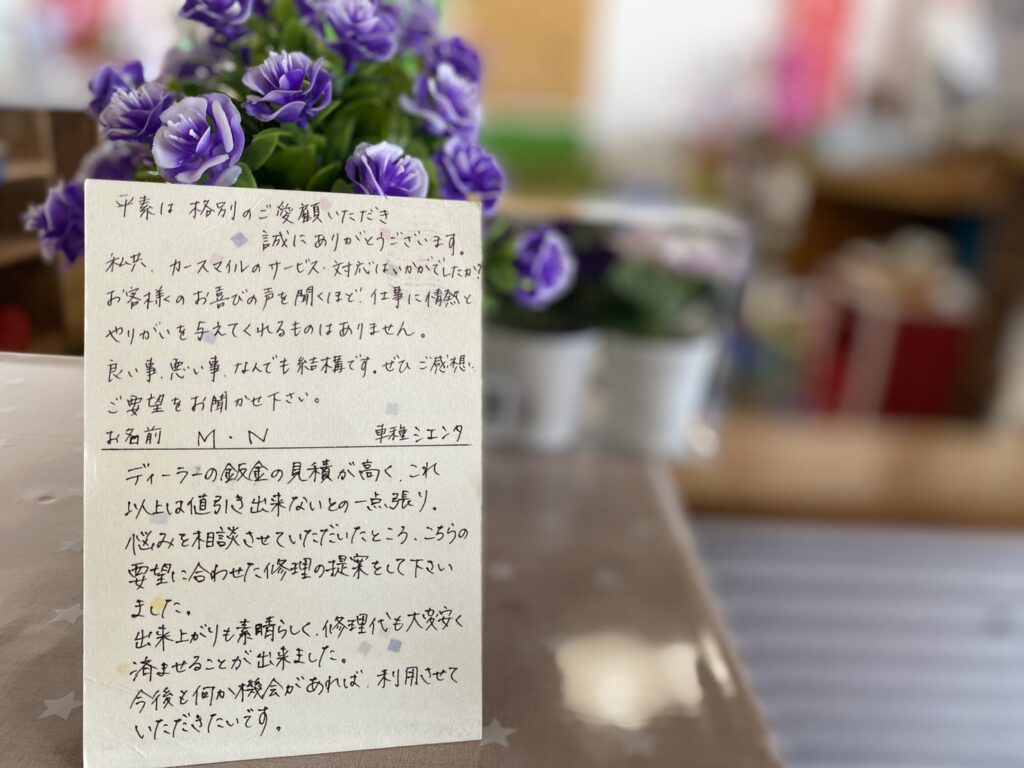 平素は 格別のご愛顧いただき
誠にありがとうございます。
私共、カースマイルのサービス・対応はいかがでしたか?
お客様のお喜びの声を聞くほど、仕事に情熱と
やりがいを与えてくれるものはありません。
良い事、悪い事、なんでも結構です。ぜひ ご感想、
ご要望をお聞かせ下さい。
お名前 M・N 車種 シエンタ
ディーラーの鈑金の見積が高く、これ
以上は値引き出来ないとの一点張り。
悩みを相談させていただいたところ、こちらの
要望に合わせた修理の提案をして下さい
ました。
出来上がりも素晴らしく、修理代も大変安く
済ませることが出来ました。
今後も何か機会があれば、利用させて
いただきたいです。